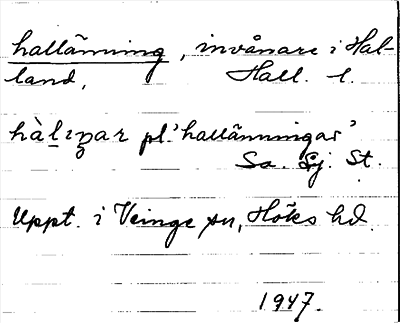 hallänning, invånare i Hal-
land, Hall. l.
hàlıŋar pl. 'hallänningar'
Sa. Sj. St.
Uppt. i Veinge sn, Höks hd.
1947.